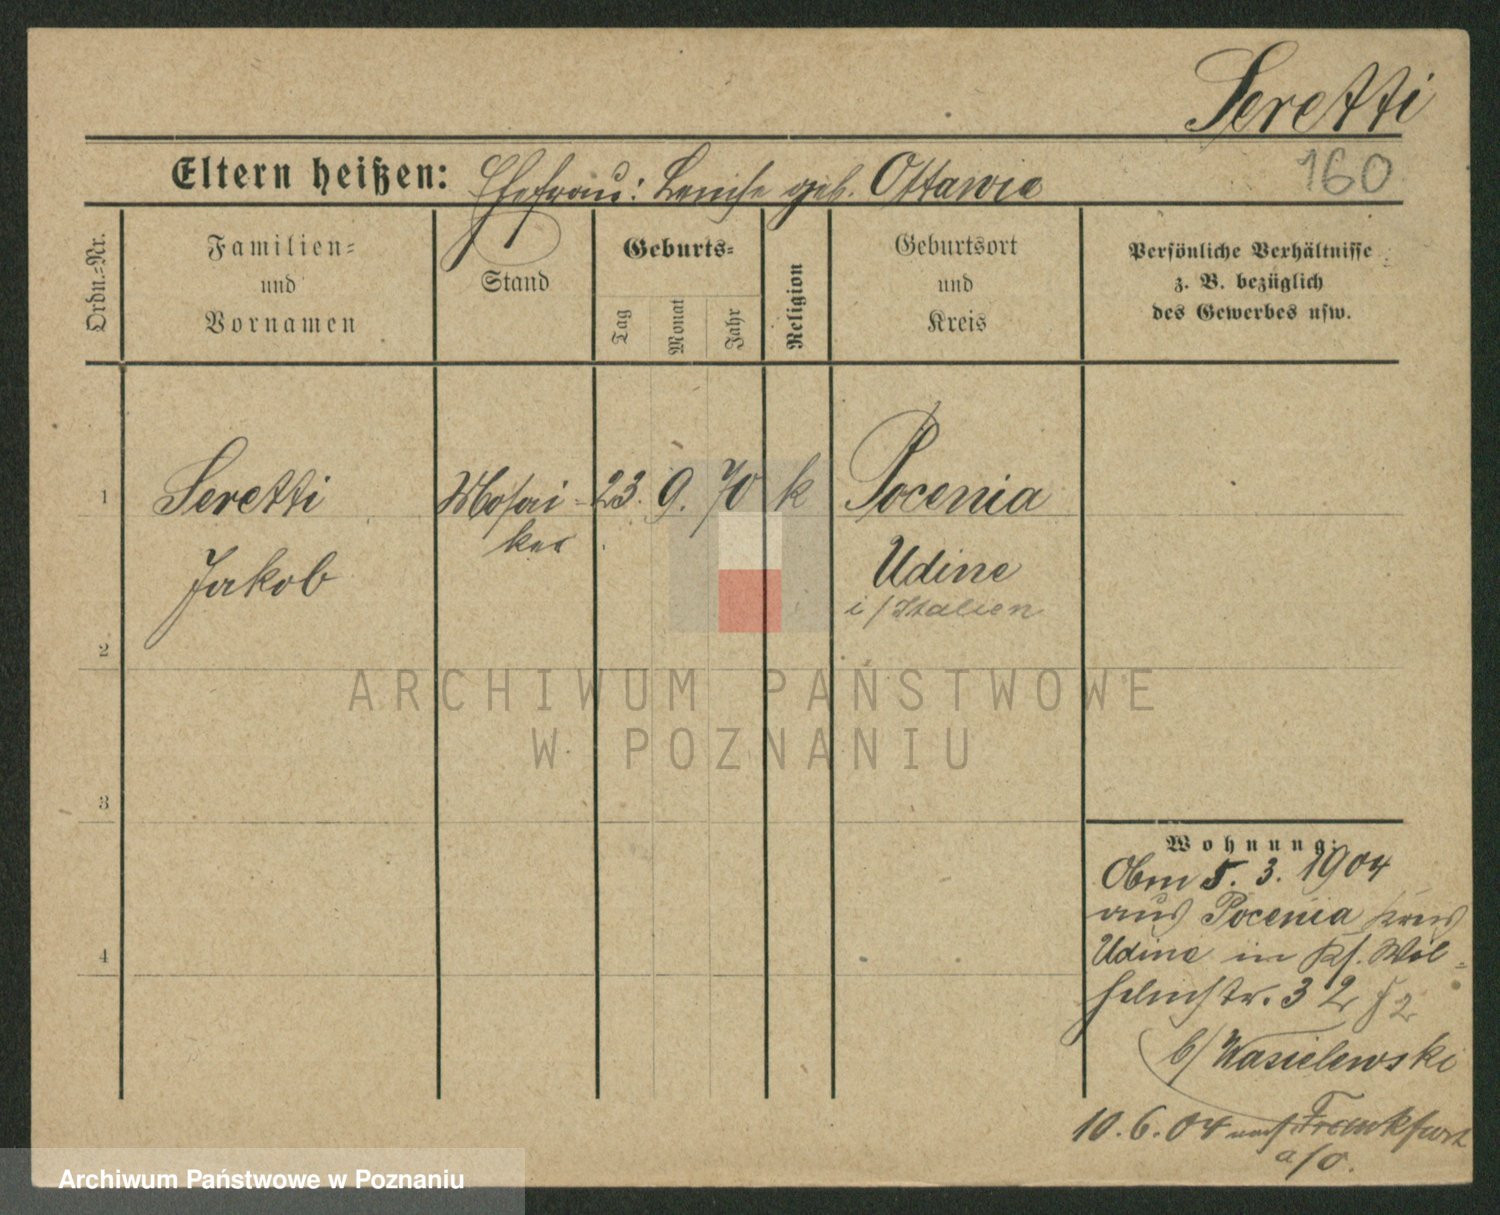 Seretti
160
Eltern heißen: Ehefrau: geb. Ottawia
Ordn.=Nr.
Familien=
und
Vornamen
Stand
Geburts=
Tag
Monat
Jahr
Religion
Geburtsort
und
Kreis
Persönliche Verhältnisse
z. B. bezüglich
des Gewerbes usw.
1 Seretti Mosai= 23. 9. 70 k Pocenia
ker
Jakob Udine
i/Italien
2
ARCHIWUM PAŃSTWOWE
W POZNANIU
3
Wohnung:
5. 3. 1904
aus Pocenia Kreis
4
Udine in Wil=
helmstr. 32
b/ Wasielewski
10.6.04 nach Frankfurt
a/O.
Archiwum Państwowe w Poznaniu